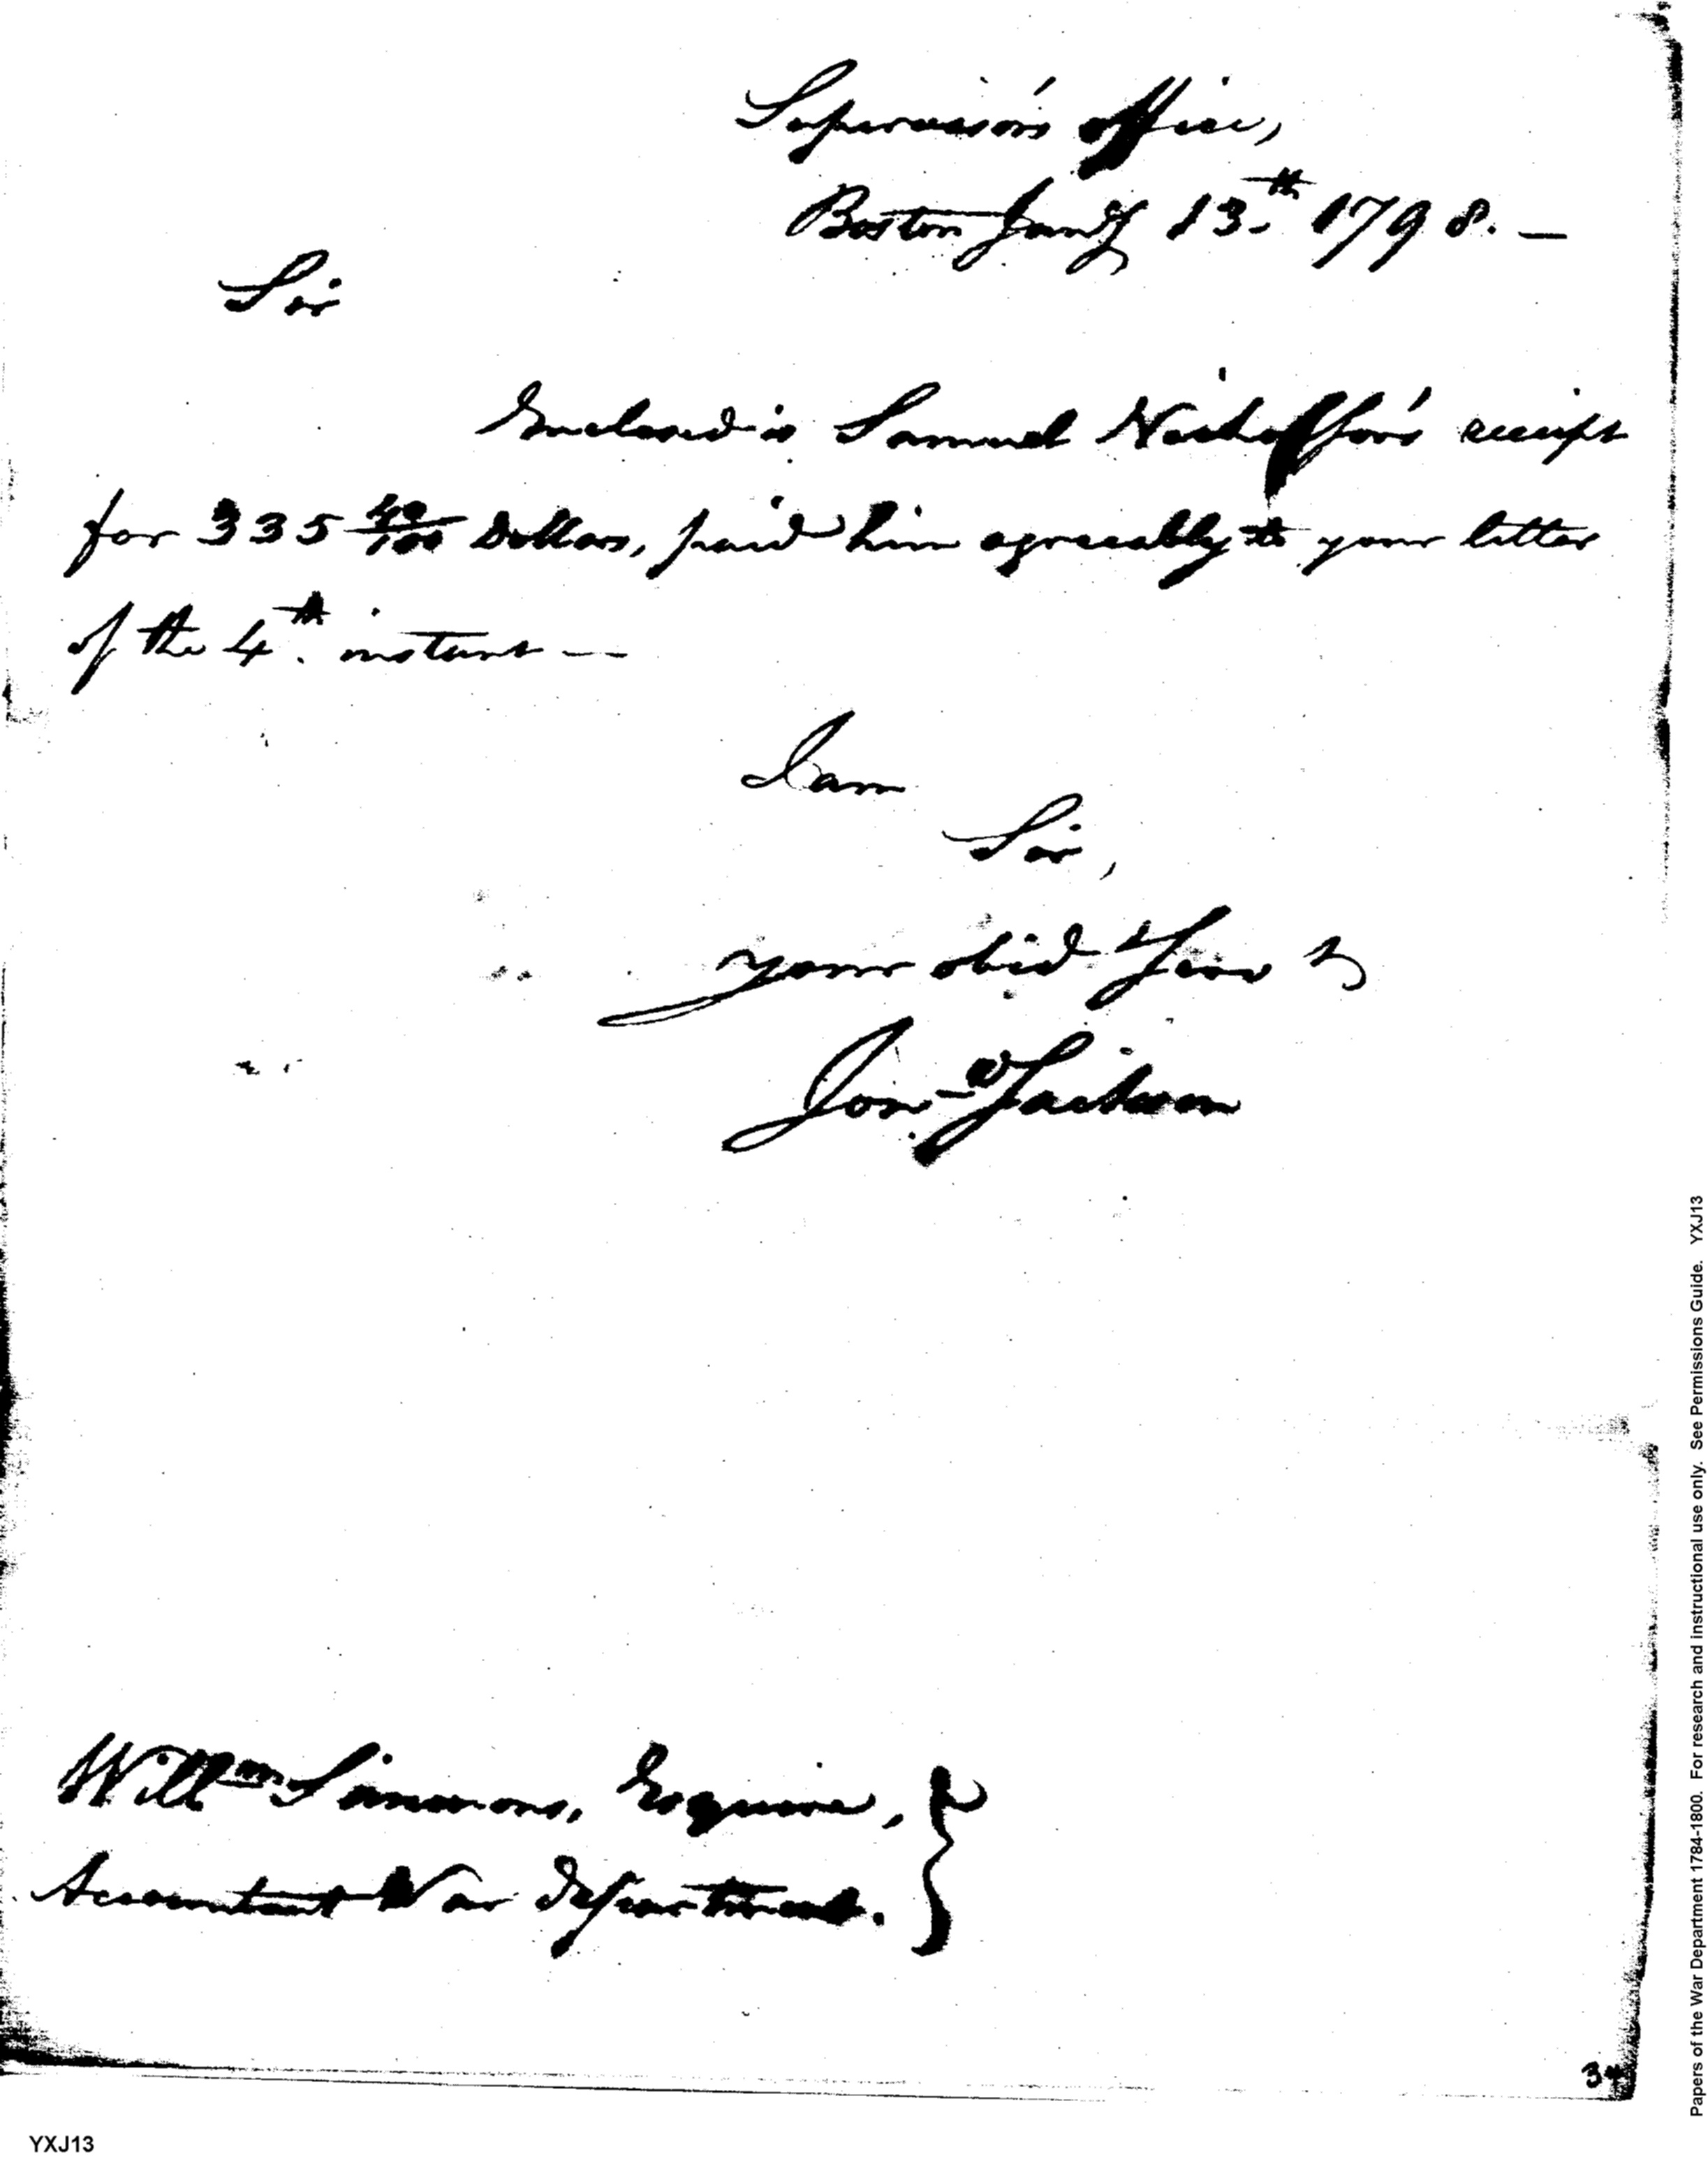 Supervisor's office,
Boston Jany 13.th 1798. —
Sir
Enclosed is Samuel receipt
for 335 40/100 Dollars, paid him agreeably to your letter
of the 4th. instant —
I am
Sir,
your obed. Serv t
Jon.a Jackson
Willm Simmons, Esquire,
Accountant War department.
34
YXJ13
Papers of the War Department 1784-1800. For research and instructional use only. See Permissions Guide. YXJ13